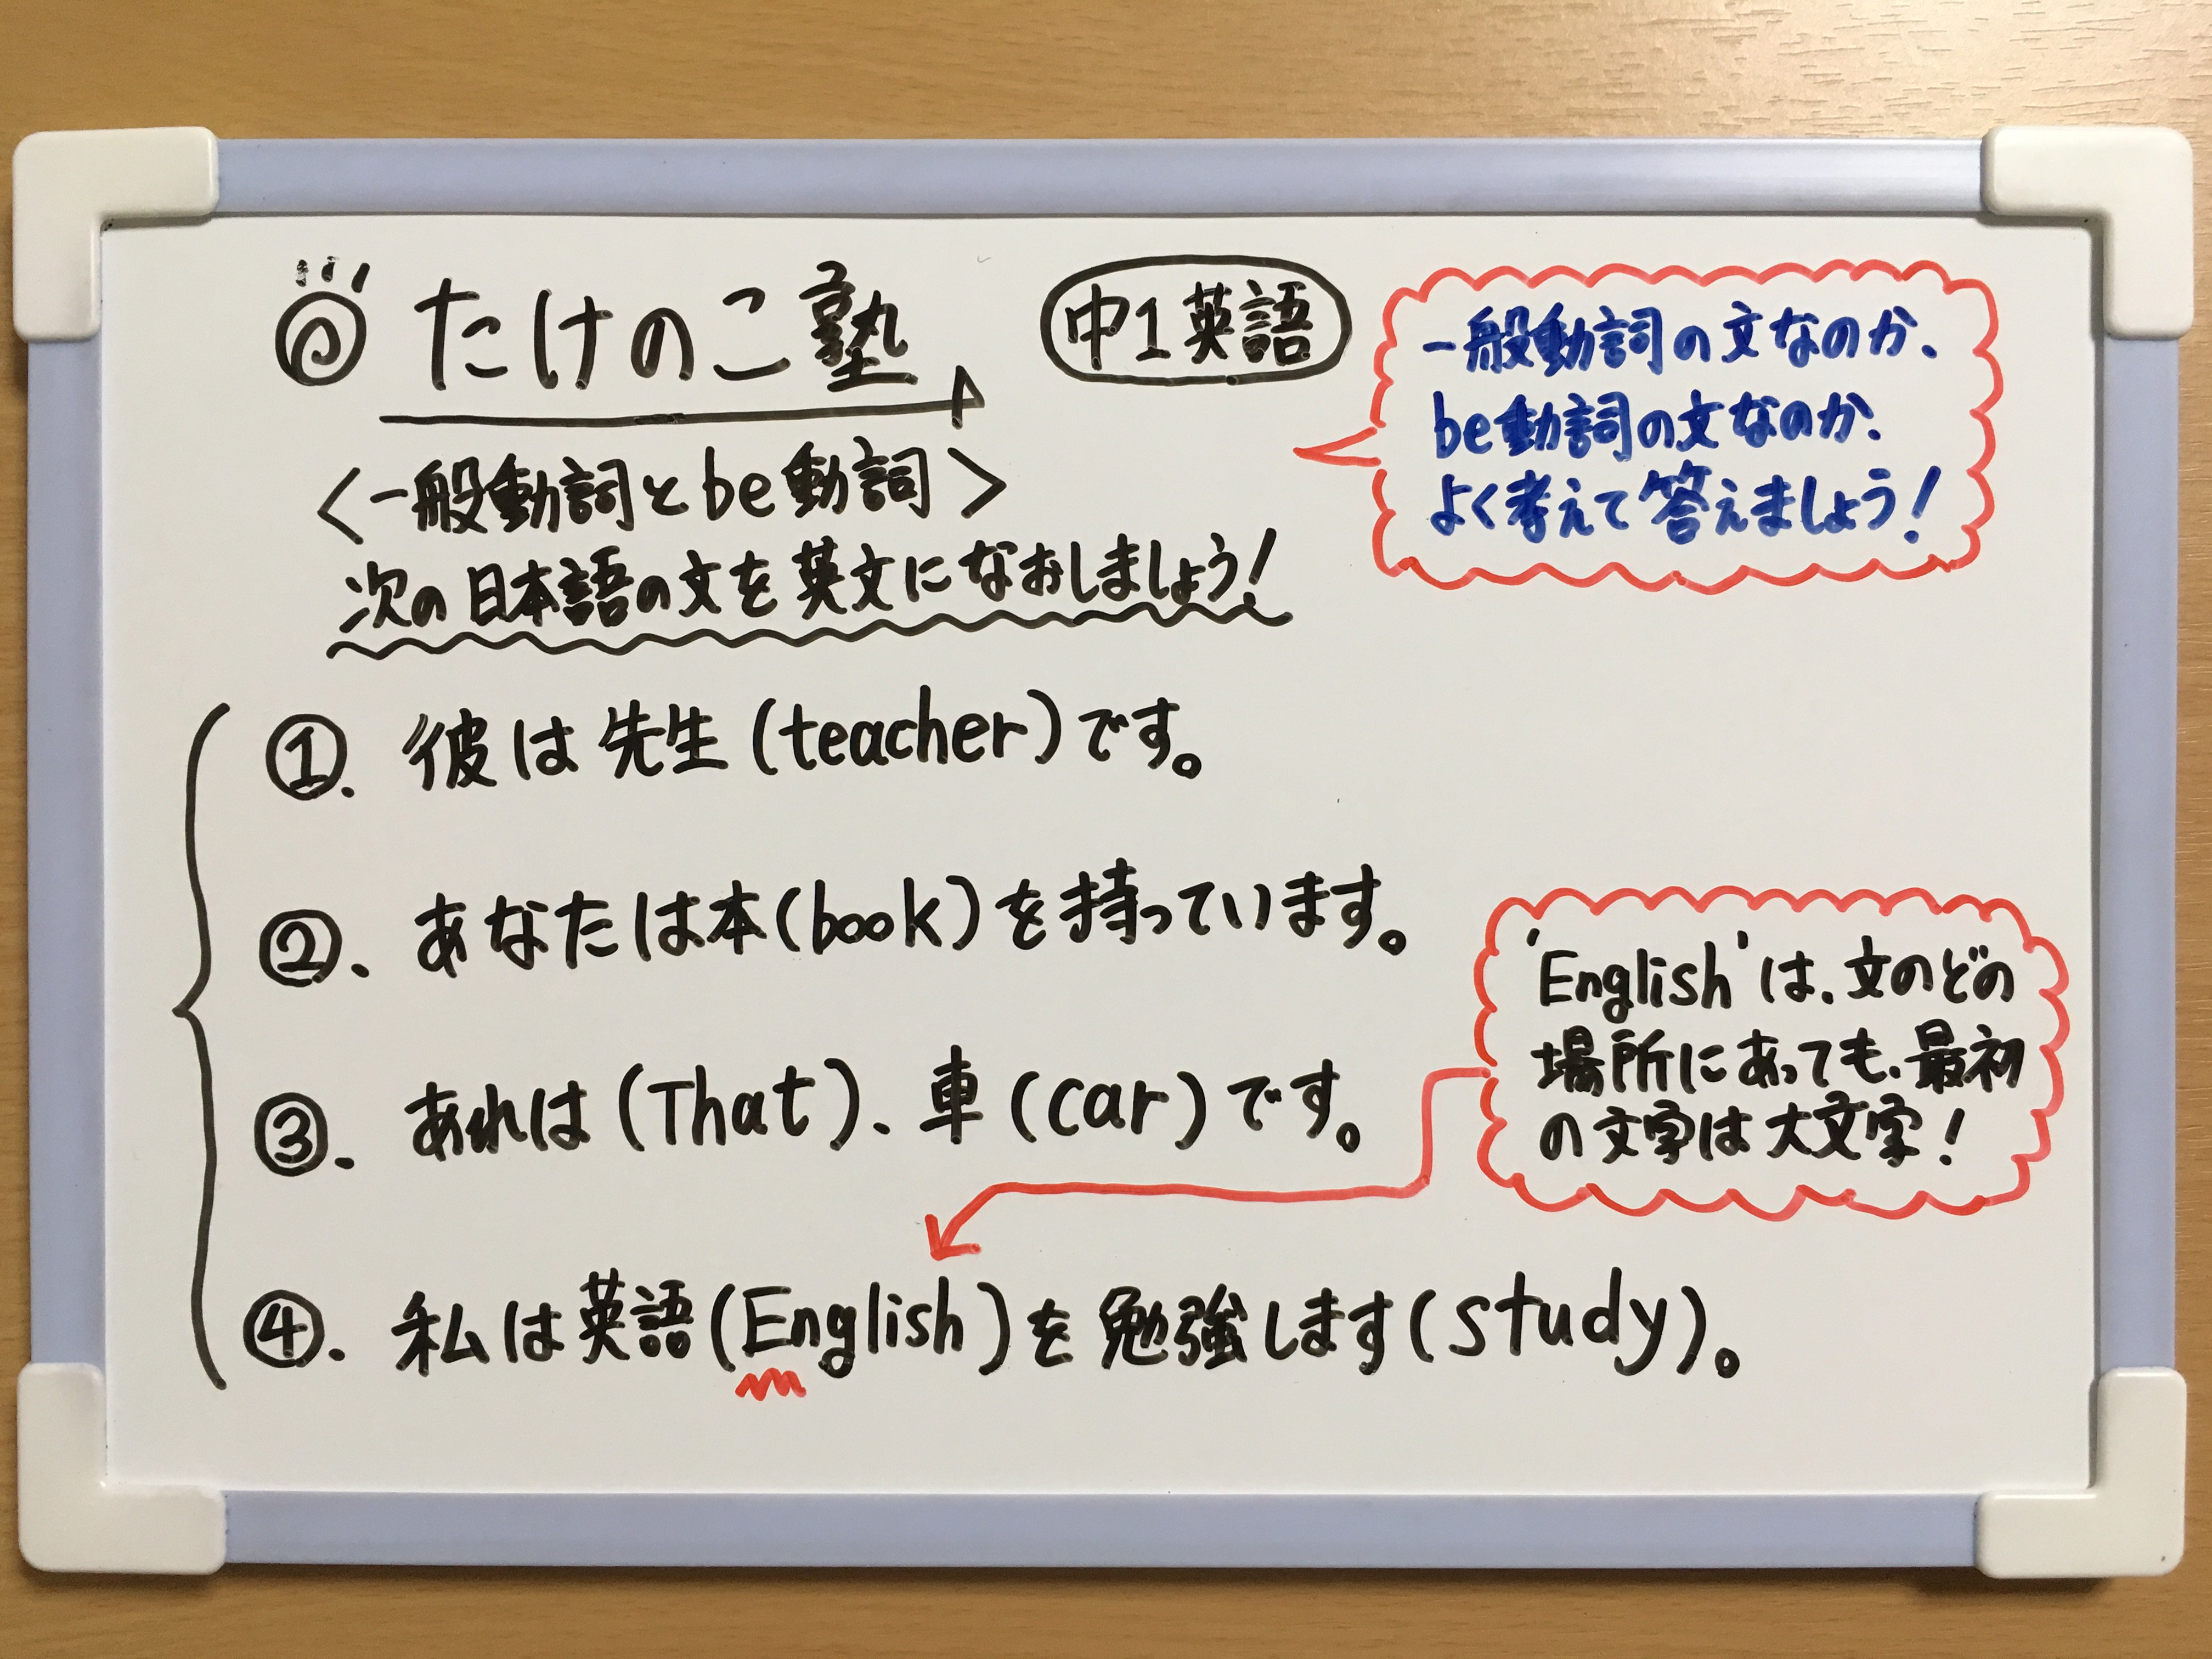 たけのこ塾
中1英語
一般動詞の文なのか、
be動詞の文なのか、
よく考えて答えましょう!
<一般動詞とbe動詞>
次の日本語の文を英文になおしましょう!
①. 彼は先生(teacher)です。
②. あなたは本(book)を持っています。
'English'は、文のどの
場所にあっても、最初
の文字は大文字!
③. あれは(That)、車(car)です。
④. 私は英語(English)を勉強します(study)。